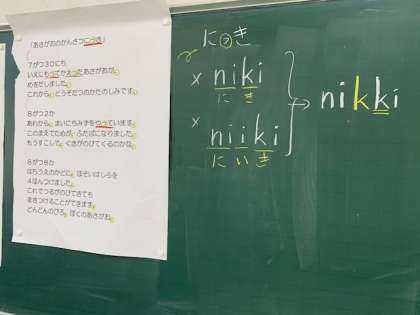 「あさがおのかんさつにっき」
7がつ30にち
いえにもってかえったあさがおが、
めをだしました。
これから、どうそだつのかたのしみです。
8がつ2か
あれから、まいにちみずをやっています。
このまえでためが、ふたばになりました。
もうすこしで、くきがのびてくるのかな。
8がつ8か
はちうえのかどに、ほそいはしらを
4ほんつけました。
これでつるがのびてきても
まきつけることができます。
どんどんのびろ、ぼくのあさがお。
にっき
× niki
にき
× niiki
にいき
→ nikki